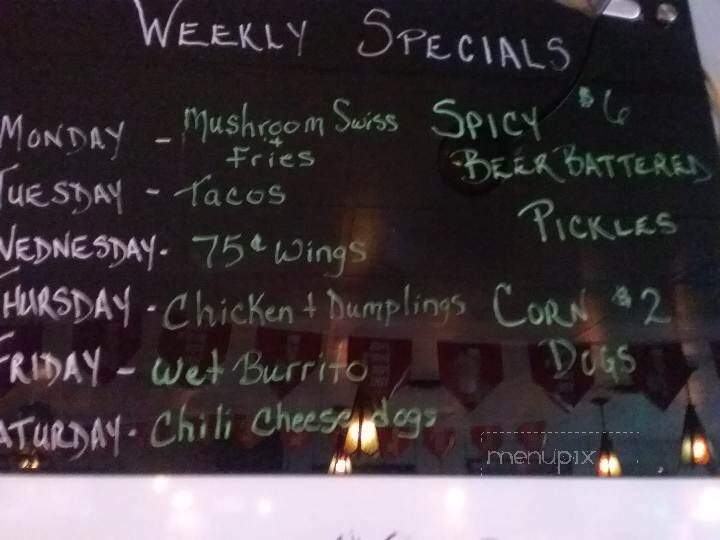 WEEKLY SPECIALS
MONDAY - Mushroom Swiss
+ Fries
TUESDAY - Tacos
WEDNESDAY - 75¢ Wings
THURSDAY - Chicken + Dumplings
FRIDAY - Wet Burrito
SATURDAY - Chili Cheese dogs
SPICY $6
BEER BATTERED
PICKLES
CORN $2
DOGS
menupix